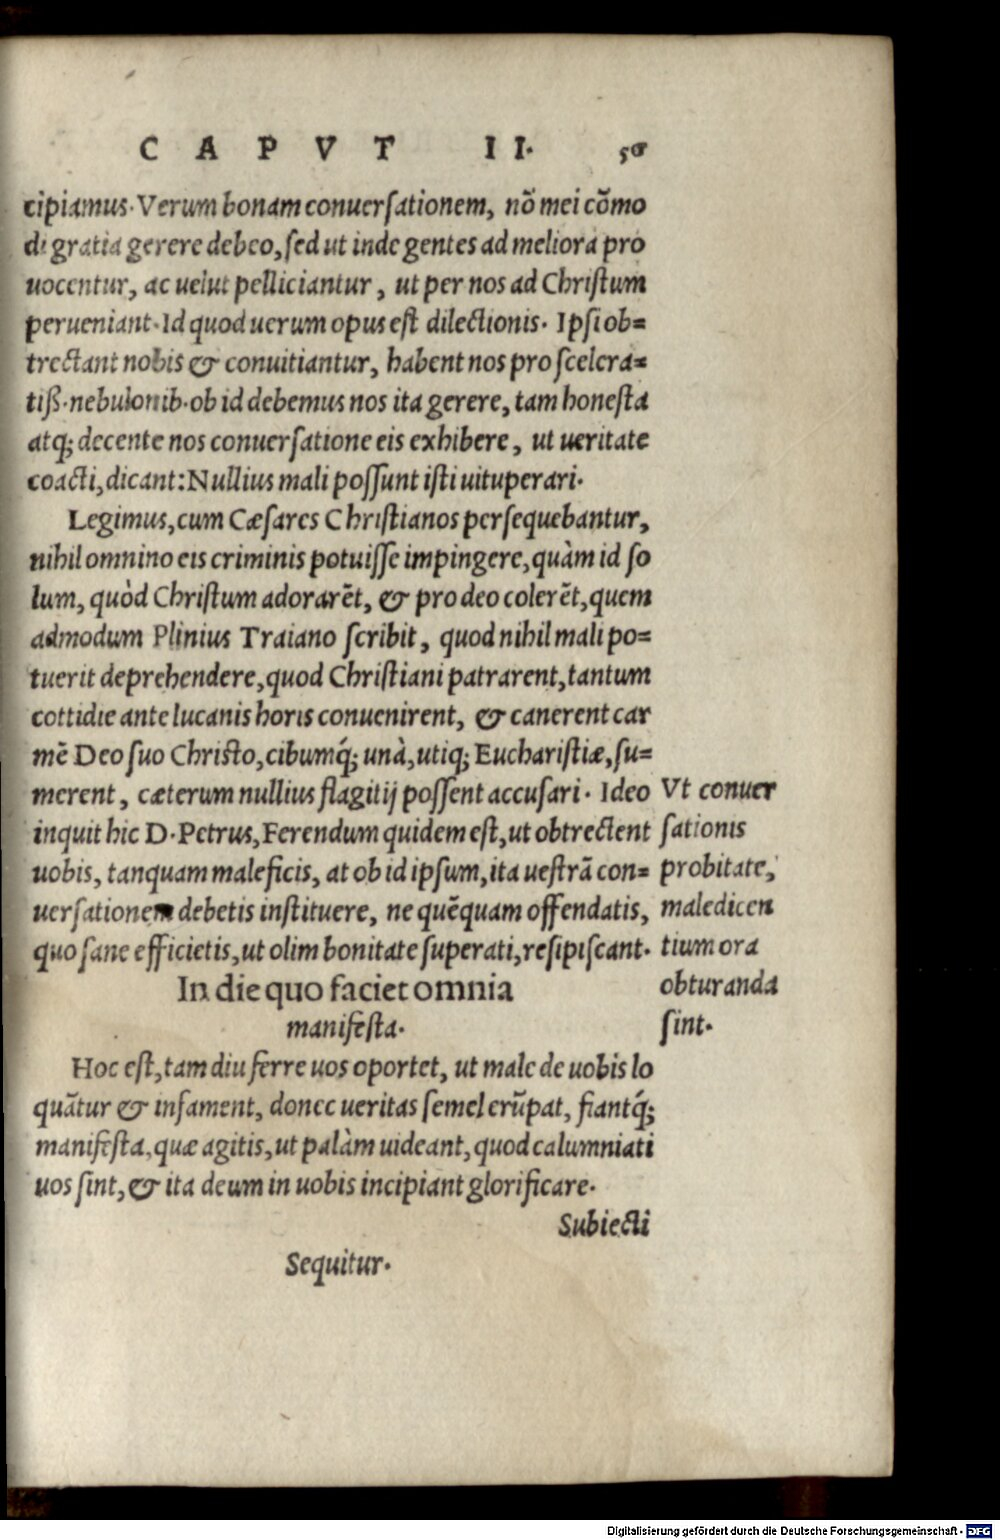 CAPVT II.
cipiamus. Verum bonam conuersationem, nõ mei cõmo
di gratia gerere debeo, sed ut inde gentes ad meliora pro
uocentur, ac uelut pelliciantur, ut per nos ad Christum
perueniant. Id quod uerum opus est dilectionis. Ipsi ob=
trectant nobis & conuitiantur, habent nos pro scelera=
tiß. nebulonib. ob id debemus nos ita gerere, tam honesta
atq; decente nos conuersatione eis exhibere, ut ueritate
coacti, dicant: Nullius mali possunt isti uituperari.
Legimus, cum Cæsares Christianos persequebantur,
nihil omnino eis criminis potuisse impingere, quàm id so
lum, quòd Christum adorarẽt, & pro deo colerẽt, quem
admodum Plinius Traiano scribit, quod nihil mali po=
tuerit deprehendere, quod Christiani patrarent, tantum
cottidie ante lucanis horis conuenirent, & canerent car
mẽ Deo suo Christo, cibumq́; unà, utiq; Eucharistiæ, su=
merent, cæterum nullius flagitij possent accusari. Ideo
inquit hic D. Petrus, Ferendum quidem est, ut obtrectent
uobis, tanquam maleficis, at ob id ipsum, ita uestrã con=
uersationem debetis instituere, ne quẽquam offendatis,
quo sane efficietis, ut olim bonitate superati, resipiscant.
Vt conuer
sationis
probitate,
maledicen
tium ora
obturanda
sint.
In die quo faciet omnia
manifesta.
Hoc est, tam diu ferre uos oportet, ut male de uobis lo
quãtur & infament, donec ueritas semel erũpat, fiantq́;
manifesta, quæ agitis, ut palàm uideant, quod calumniati
uos sint, & ita deum in uobis incipiant glorificare.
Subiecti
Sequitur.
Digitalisierung gefördert durch die Deutsche Forschungsgemeinschaft - DFG